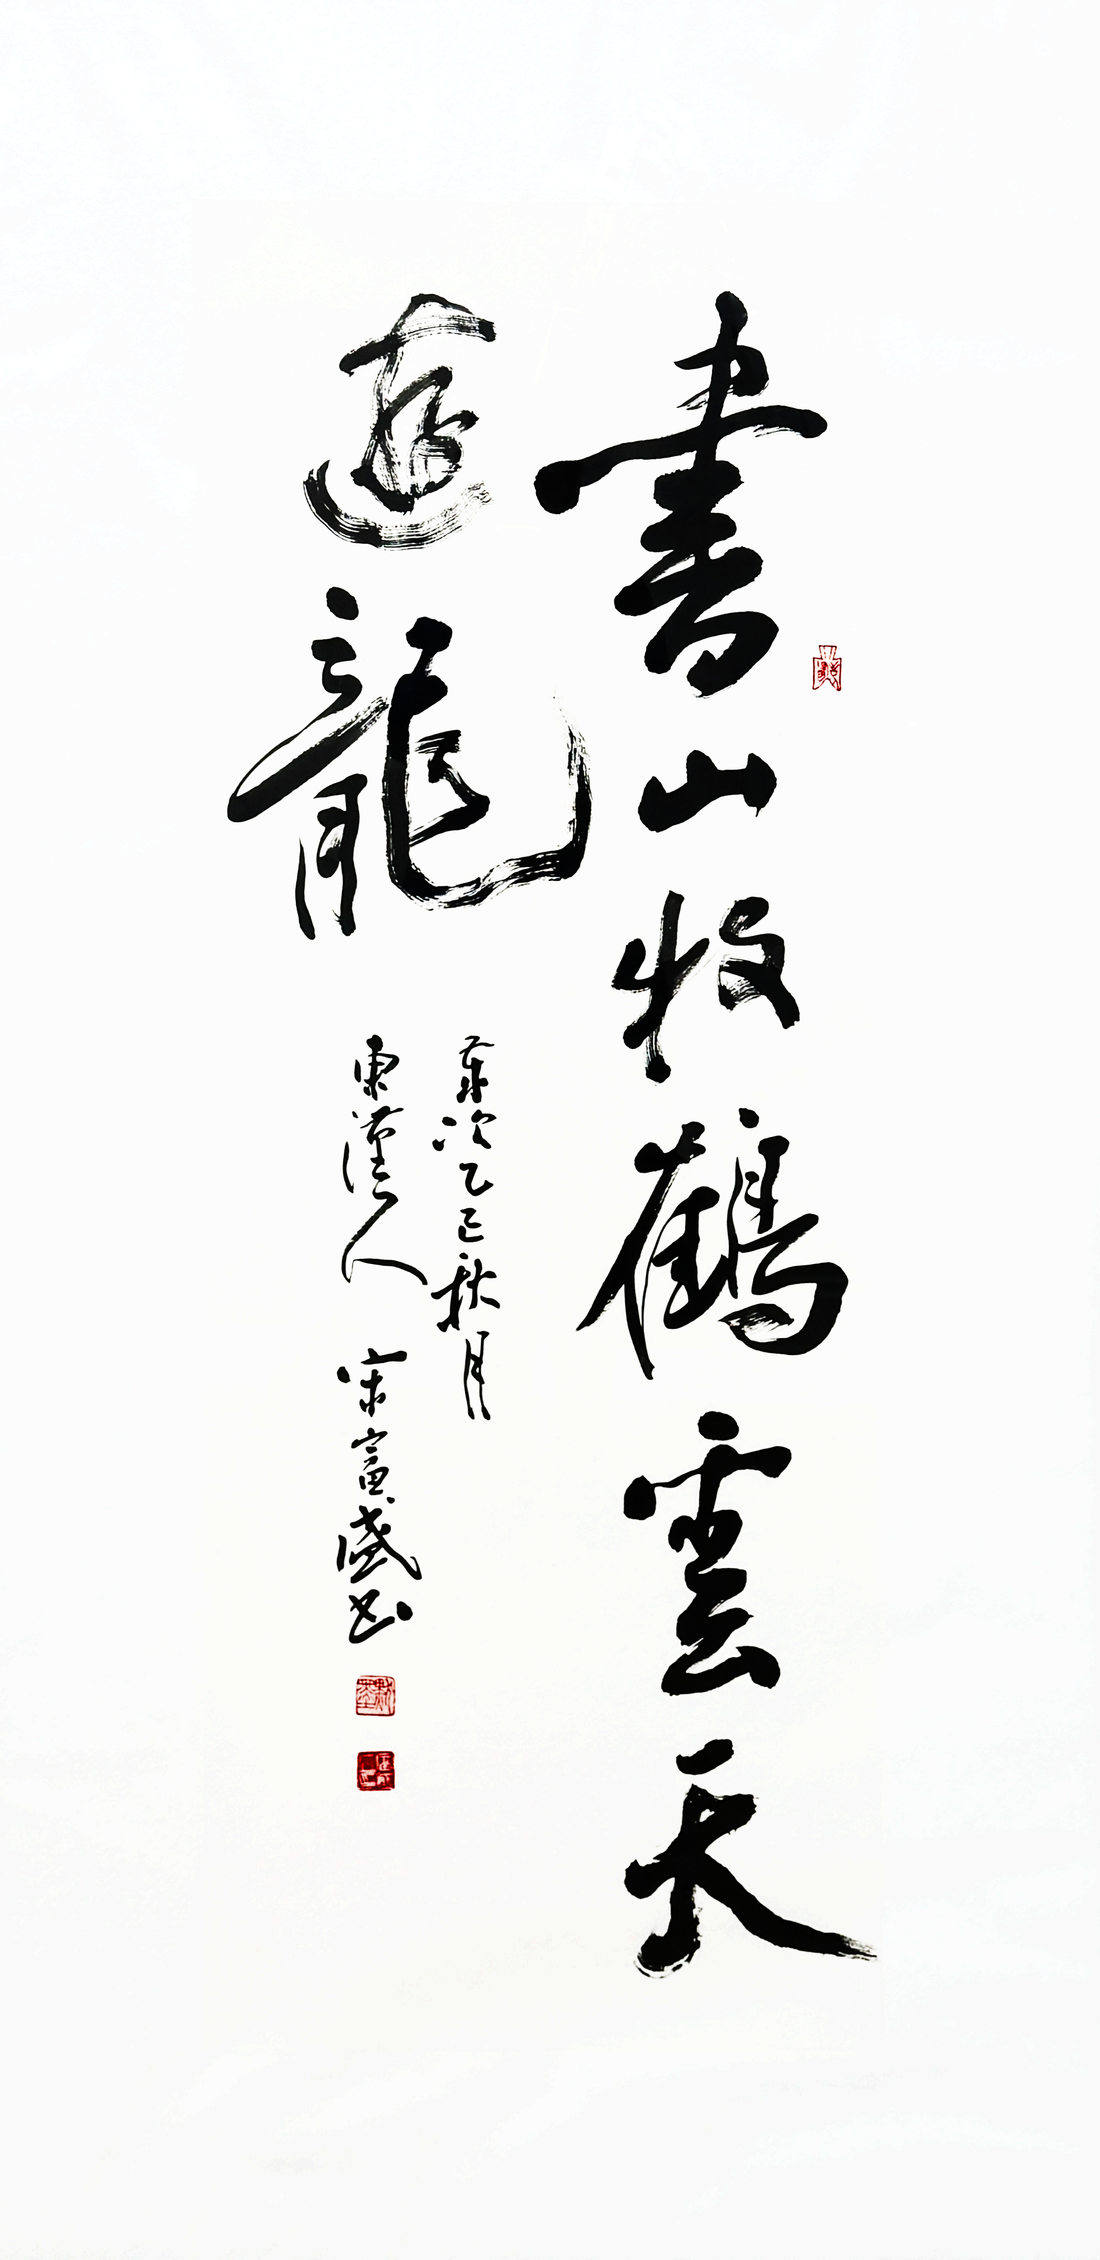 書山牧鶴雲天
遊龍
歲次乙巳秋月
東漢人宋富盛书